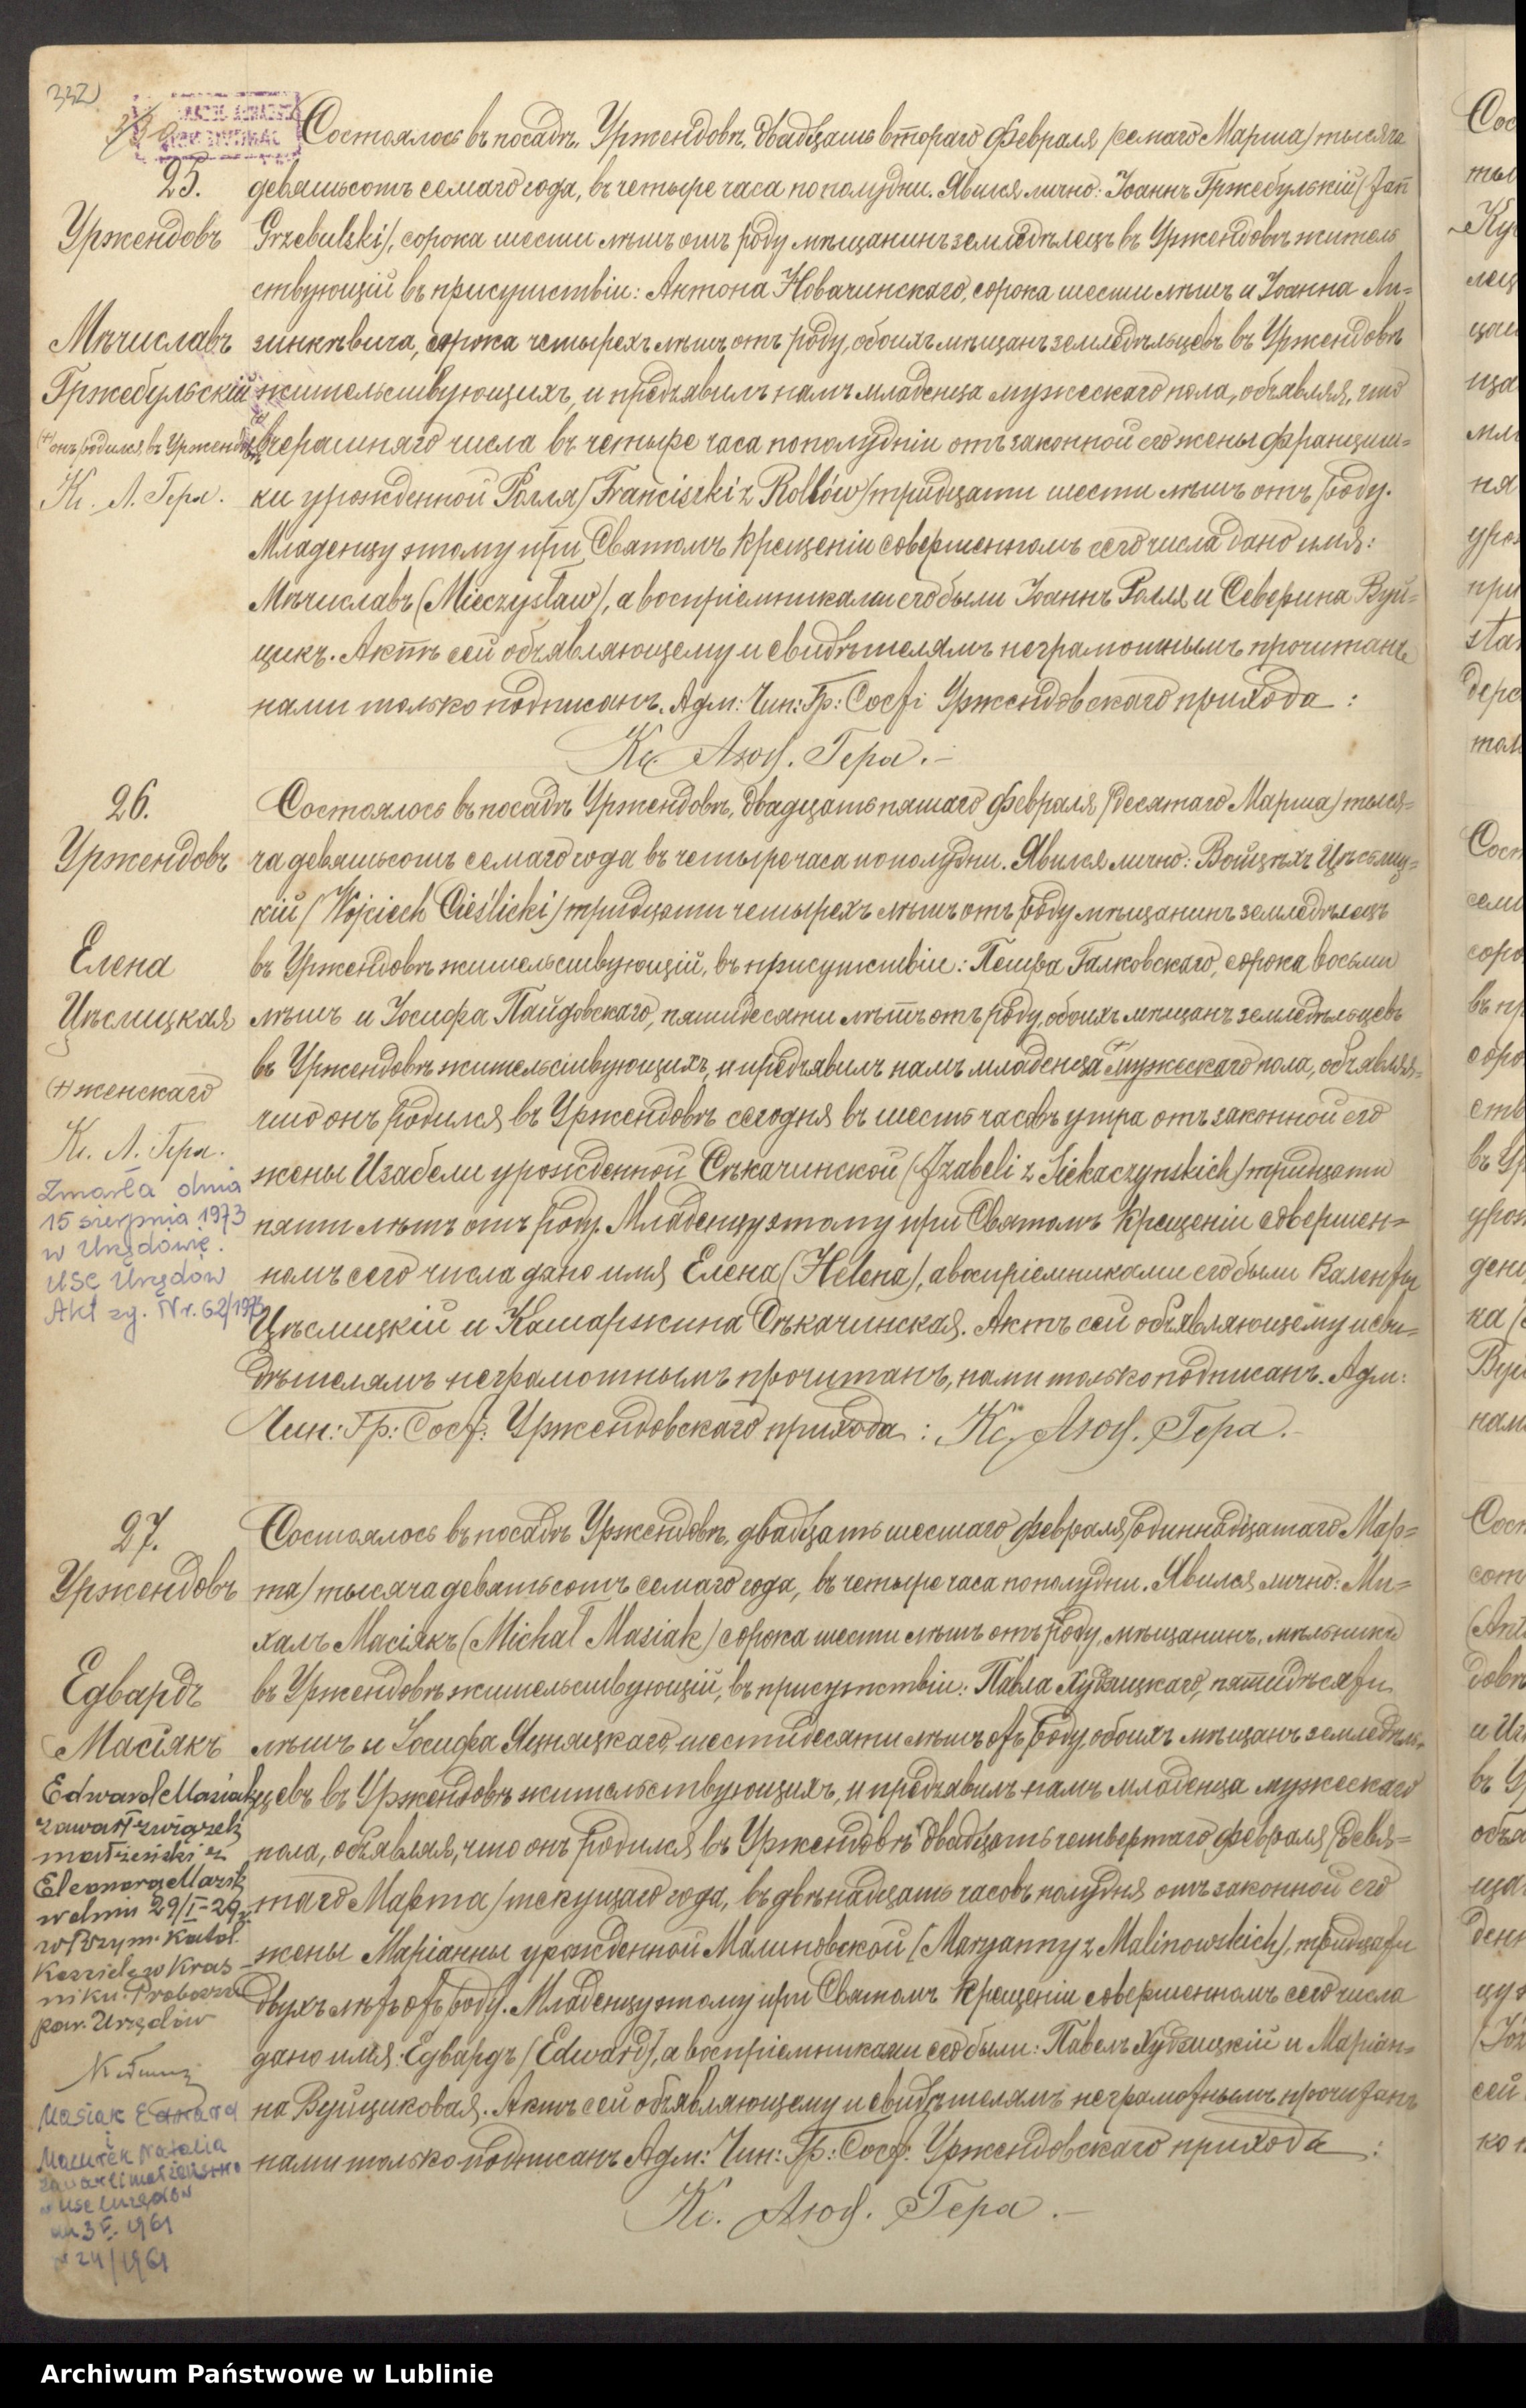 332
25.
Уржендовъ
Мѣчиславъ
Гржебульскій
(+) онъ родился въ Уржендовѣ
Кс. Л. Гера.
Состоялось въ посадѣ Уржендовѣ, двадцать втораго Февраля /седмаго Марта/ тысяча
девятьсотъ седмаго года, въ четыре часа по полудни. Явился лично: Іоаннъ Гржебульскій /Jan
Grzebulski/, сорока шести лѣтъ отъ роду мѣщанинъ земледѣлецъ въ Уржендовѣ житель
ствующій въ присутствіи: Антона Новачинскаго, сорока шести лѣтъ и Іоанна Ли=
зинкѣвича, сорока четырехъ лѣтъ отъ роду, обоихъ мѣщанъ земледѣльцевъ въ Уржендовѣ
жительствующихъ, и предъявилъ намъ младенца мужескаго пола, объявляя, что
(+) вчерашняго числа въ четыре часа пополудни отъ законной его жены Францищ=
ки урожденной Ролля /Franciszki z Rollów/ тридцати шести лѣтъ отъ роду.
Младенцу этому при Святомъ Крещеніи совершенномъ сего числа дано имя:
Мѣчиславъ (Mieczysław), а воспріемниками его были Іоаннъ Ролля и Северина Вуй=
цикъ. Актъ сей объявляющему и свидѣтелямъ неграмотнымъ прочитанъ
нами только подписанъ. Адм: Чин: Гр: Сост: Уржендовскаго прихода :
Кс. Люд. Гера.
26.
Уржендовъ
Елена
Цѣслицкая
(+) женскаго
Кс. Л. Гера.
Zmarła dnia
15 sierpnia 1973
w Urzędowie.
USC Urzędów
Akt zg. Nr. 62/1973
Состоялось въ посадѣ Уржендовѣ, двадцать пятаго Февраля /десятаго Марта/ тыся=
ча девятьсотъ седмаго года въ четыре часа по полудни. Явился лично: Войцѣхъ Цѣслиц=
кій /Wojciech Cieślicki/ тридцати четырехъ лѣтъ отъ роду мѣщанинъ земледѣлецъ
въ Уржендовѣ жительствующій, въ присутствіи: Петра Галковскаго, сорока восьми
лѣтъ и Іосифа Пайдовскаго, пятидесяти лѣтъ отъ роду, обоихъ мѣщанъ земледѣльцевъ
въ Уржендовѣ жительствующихъ, и предъявилъ намъ младенца (+) мужескаго пола, объявляя=
что онъ родился въ Уржендовѣ сегодня въ шесть часовъ утра отъ законной его
жены Изабели урожденной Сѣкачинской (Izabeli z Siekaczynskich) тридцати
пяти лѣтъ отъ роду. Младенцу этому при Святомъ Крещеніи совершен=
номъ сего числа дано имя Елена (Helena), а воспріемниками его были Валентій
Цѣслицкій и Катаржина Сѣкачинская. Актъ сей объявляющему и сви=
дѣтелямъ неграмотнымъ прочитанъ, нами только подписанъ. Адм:
Чин: Гр: Сост: Уржендовскаго прихода : Кс. Люд. Гера.
27.
Уржендовъ
Едвардъ
Масіякъ
Edward Masiak
zawarł związek
małżeński z
Eleonorą Mazik
w dniu 29/I-29
w Rzym. Katol.
Kościele w Kras-
niku. Proboszcz
par. Urzędów
Masiak Edward
i
Maciurek Natalia
zawarli małżeństwo
w USC Urzędów
24/1961
Состоялось въ посадѣ Уржендовѣ, двадцать шестаго Февраля /одиннадцатаго Мар=
та/ тысяча девятьсотъ седмаго года, въ четыре часа пополудни. Явился лично: Ми=
халъ Масіякъ (Michał Masiak) сорока шести лѣтъ отъ роду, мѣщанинъ, мѣльникъ
въ Уржендовѣ жительствующій, въ присутствіи: Павла Худзицкаго, пятидѣсяти
лѣтъ и Іосифа Яцняцкаго, шестидесяти лѣтъ отъ роду, обоихъ мѣщанъ земледѣль=
цевъ въ Уржендовѣ жительствующихъ, и предъявилъ намъ младенца мужескаго
пола, объявляя, что онъ родился въ Уржендовѣ двадцать четвертаго Февраля /девя=
таго Марта/ текущаго года, въ двѣнадцать часовъ полудня отъ законной его
жены Маріанны урожденной Малиновской /Maryanny z Malinowskich/, тридцати
двухъ лѣтъ отъ роду. Младенцу этому при Святомъ Крещеніи совершенномъ сего числа
дано имя: Едвардъ /Edward/, а воспріемниками его были: Павелъ Худзицкій и Маріан=
на Вуйциковая. Актъ сей объявляющему и свидѣтелямъ неграмотнымъ прочитанъ
нами только подписанъ Адм: Чин: Гр: Сост: Уржендовскаго прихода :
Кс. Люд. Гера.
Archiwum Państwowe w Lublinie